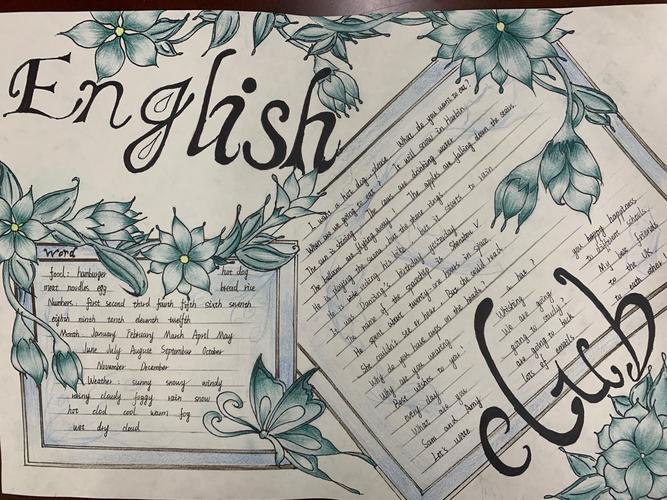 English
Word
food: hamburger hot dog
meat noodles egg bread rice
Numbers: first second third fourth fifth sixth seventh
eighth ninth tenth eleventh twelfth
Month January February March April May
June July August September October
November December
Weather: sunny snowy windy
rainy cloudy foggy rain snow
hot clod cool warm fog
wet dry cloud
I want a hot dog, please. What do you want to eat?
When are we going to eat? It will snow in Harbin
The sun is shining. The cows are drinking water
The ballons are flying away. The apples are falling down the stairs.
He is playing the suona, but the phone rings
He is riding his bike, but it starts to rain
It was Daming's birthday yesterday
The name of the spaceship is Shenzhou V.
He spent about twenty-one hours in space
She couldn't see or hear. But she could read.
Why do you have cups on the heads?
Why are you wearing
Best wishes to you!
every day
What are you
Sam and Amy
Let's write
has
Whishing you happy happiness
We are going to different schools
going to study? My best friends
are going to back to the UK
Lots of emails to each other
Club